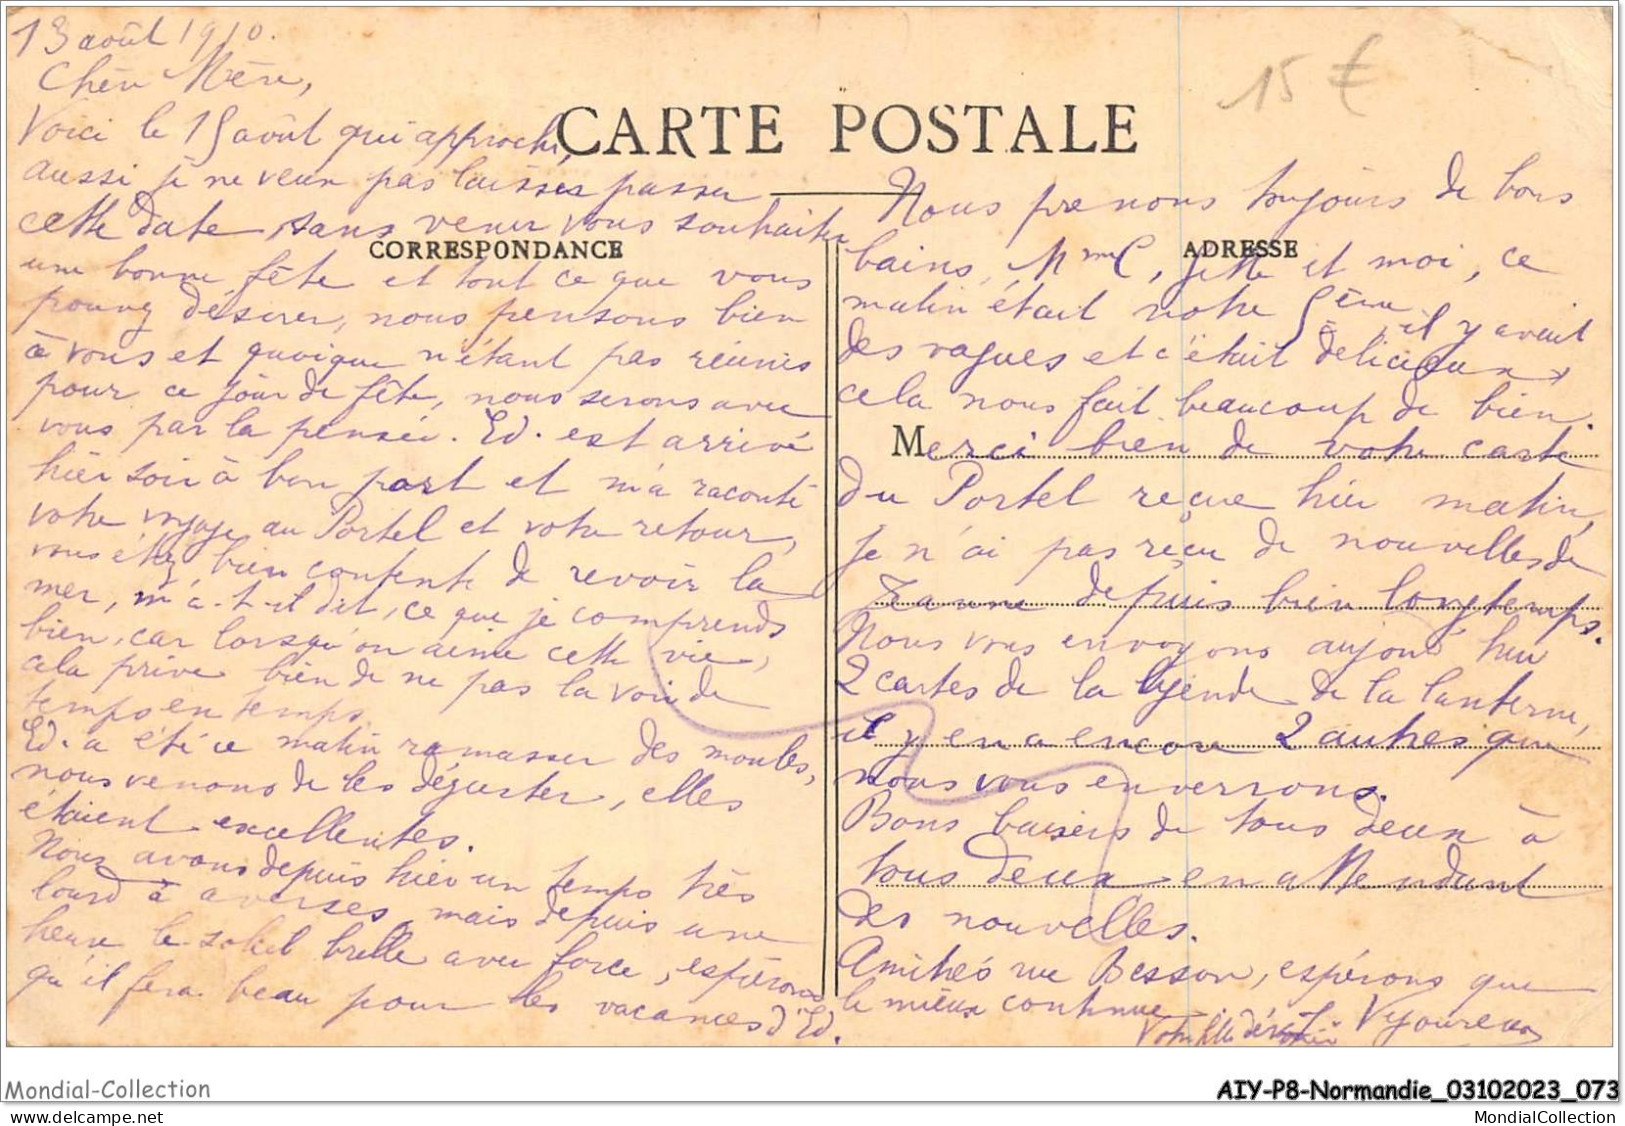 13 août 1910.
Chère Mère,
Voici le 15 août qui approche,
aussi je ne veux pas laisser passer
cette date sans venir vous souhaiter
une bonne fête et tout ce que vous
pouvez désirer, nous pensons bien
à vous et quoique n'étant pas réunis
pour ce jour de fête, nous serons avec
vous par la pensée. Ed. est arrivé
hier soir à bon port et m'a raconté
votre voyage au Portel et votre retour,
vous étiez bien contente de revoir la
mer, m'a-t-il dit, ce que je comprends
bien, car lorsqu'on aime cette vie,
cela prive bien de ne pas la voir de
temps en temps.
Ed. a été ce matin ramasser des moules,
nous venons de les déguster, elles
étaient excellentes.
Nous avons depuis hier un temps très
lourd à averses, mais depuis une
heure le soleil brille avec force, espérons
qu'il fera beau pour les vacances d'Ed.
CARTE POSTALE
CORRESPONDANCE
ADRESSE
15 €
Nous prenons toujours de bons
bains, Mme C, et moi, ce
matin était notre 5ème, il y avait
des vagues et c'était délicieux,
cela nous fait beaucoup de bien.
Merci bien de votre carte
du Portel reçue hier matin,
je n'ai pas reçu de nouvelles de
Jeanne depuis bien longtemps.
Nous vous envoyons aujourd'hui
2 cartes de la légende de la lanterne,
il y en a encore 2 autres que
nous vous enverrons.
Bons baisers de tous deux à
tous deux en attendant
des nouvelles.
Amitiés rue Besson, espérons que
le mieux continue
Votre fille
Mondial-Collection
AIY-P8-Normandie_03102023_073
MondialCollection
MondialCollection